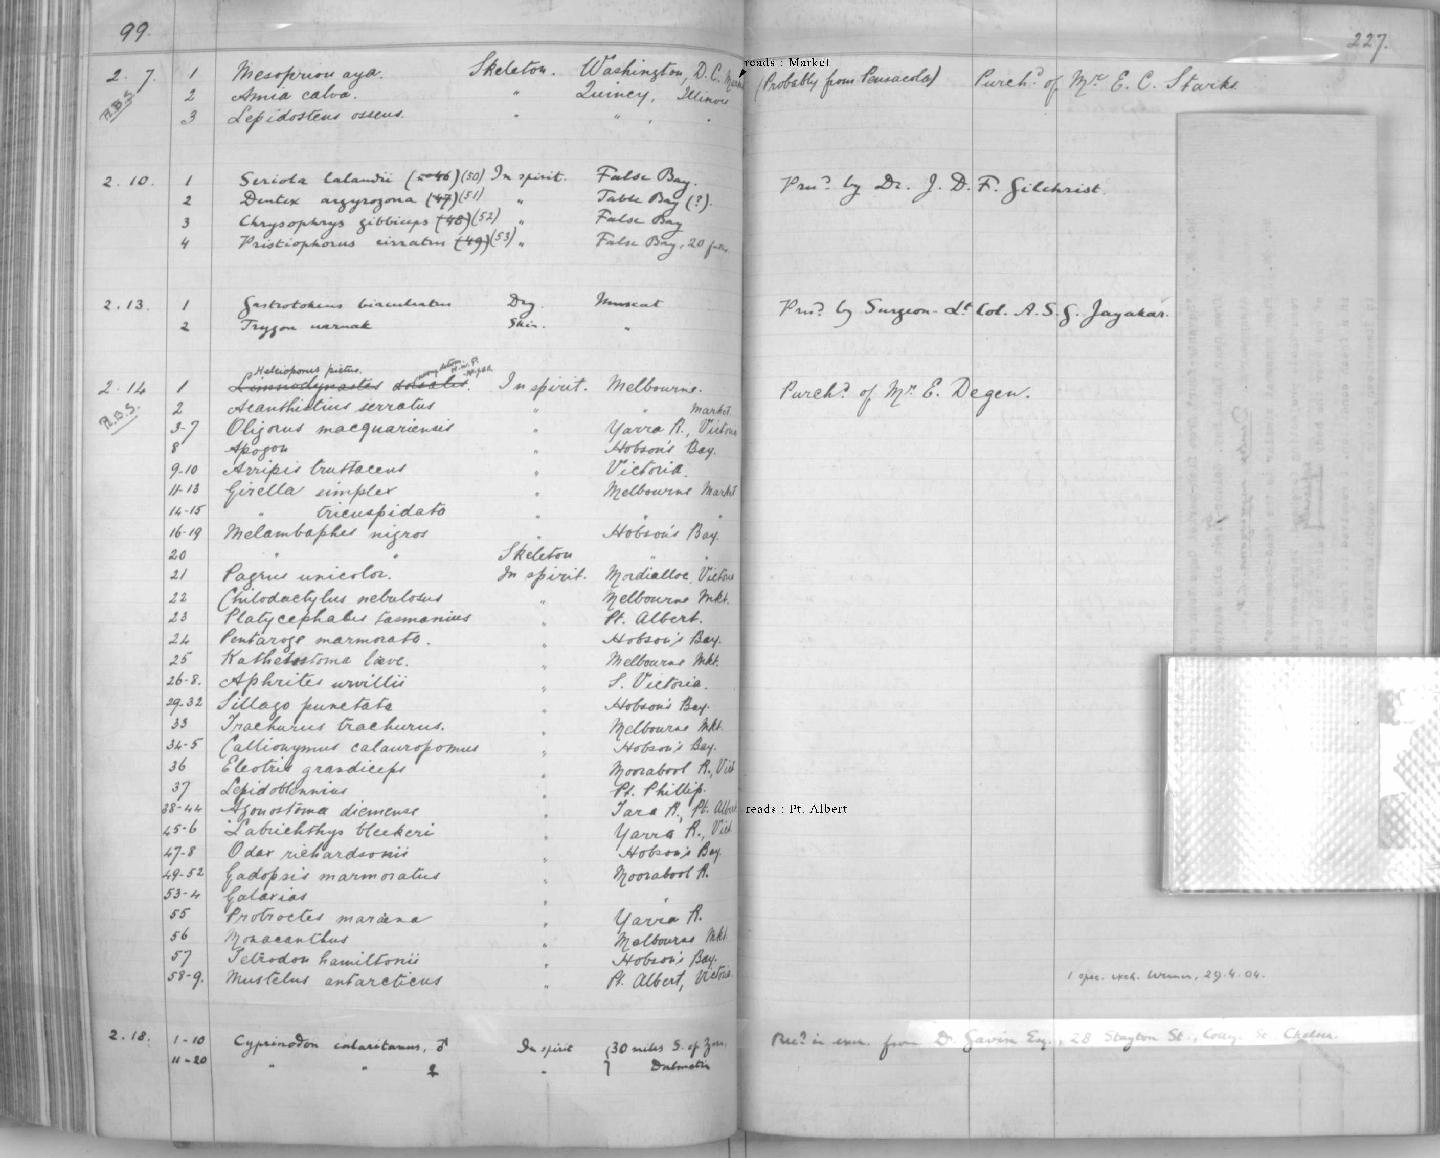 99.
227.
reads : Market
2. 7. 1 Mesoprion aya. Skeleton. Washington, D.C. Market (Probably from Pensacola) Purchd. of Mr. E. C. Starks.
R.B.S. 2 Amia calva. " Quincy, Illinois
3 Lepidosteus osseus. " " "
2. 10. 1 Seriola lalandii (46) (50) In spirit. False Bay. Presd. by Dr. J. D. F. Gilchrist.
2 Dentex argyrozona (47) (51) " Table Bay (?).
3 Chrysophrys gibbiceps (48) (52) " False Bay
4 Pristiophorus cirratus (49) (53) " False Bay, 20 fms.
2. 13. 1 Gastrotokeus biaculeatus Dry. Muscat Presd. by Surgeon-Lt. Col. A. S. G. Jayakar.
2 Trygon uarnak Skin. "
Heleioporus pictus.
2. 14 1 Limnodynastes dorsalis. In spirit. Melbourne. Purchd. of Mr. E. Degen.
R.B.S. 2 Acanthistius serratus " " Market.
3-7 Oligorus macquariensis " Yarra R., Victoria
8 Apogon " Hobson's Bay.
9-10 Arripis truttaceus " Victoria.
11-13 Girella simplex " Melbourne Market
14-15 " tricuspidata " " "
16-19 Melambaphes nigros " Hobson's Bay.
20 " " Skeleton " "
21 Pagrus unicolor. In spirit. Mordialloc, Victoria
22 Chilodactylus nebulosus " Melbourne Mkt.
23 Platycephalus tasmanius " Pt. Albert.
24 Pentaroge marmorata. " Hobson's Bay.
25 Kathetostoma læve. " Melbourne Mkt.
26-8. Aphrites urvillii " S. Victoria.
29-32 Sillago punctata " Hobson's Bay.
33 Trachurus trachurus. " Melbourne Mkt.
34-5 Callionymus calauropomus " Hobson's Bay.
36 Eleotris grandiceps " Moorabool R., Vict
37 Lepidoblennius " Pt. Phillip.
38-44 Agonostoma diemense " Tara R., Pt. Albert reads : Pt. Albert
45-6 Labrichthys bleekeri " Yarra R., Vict
47-8 Odax richardsonii " Hobson's Bay.
49-52 Gadopsis marmoratus " Moorabool R.
53-4 Galaxias " "
55 Protroctes maræna " Yarra R.
56 Monacanthus " Melbourne Mkt.
57 Tetrodon hamiltonii " Hobson's Bay.
58-9. Mustelus antarcticus " Pt. Albert, Victoria 1 spec. exch. Werner, 29.4.04.
2. 18. 1-10 Cyprinodon calaritanus, ♂ In spirit (30 miles S. of Zara, Recd. in exch. from D. Gavin Esq., 28 Stayton St., Chelsea.
11-20 " " ♀ " Dalmatia